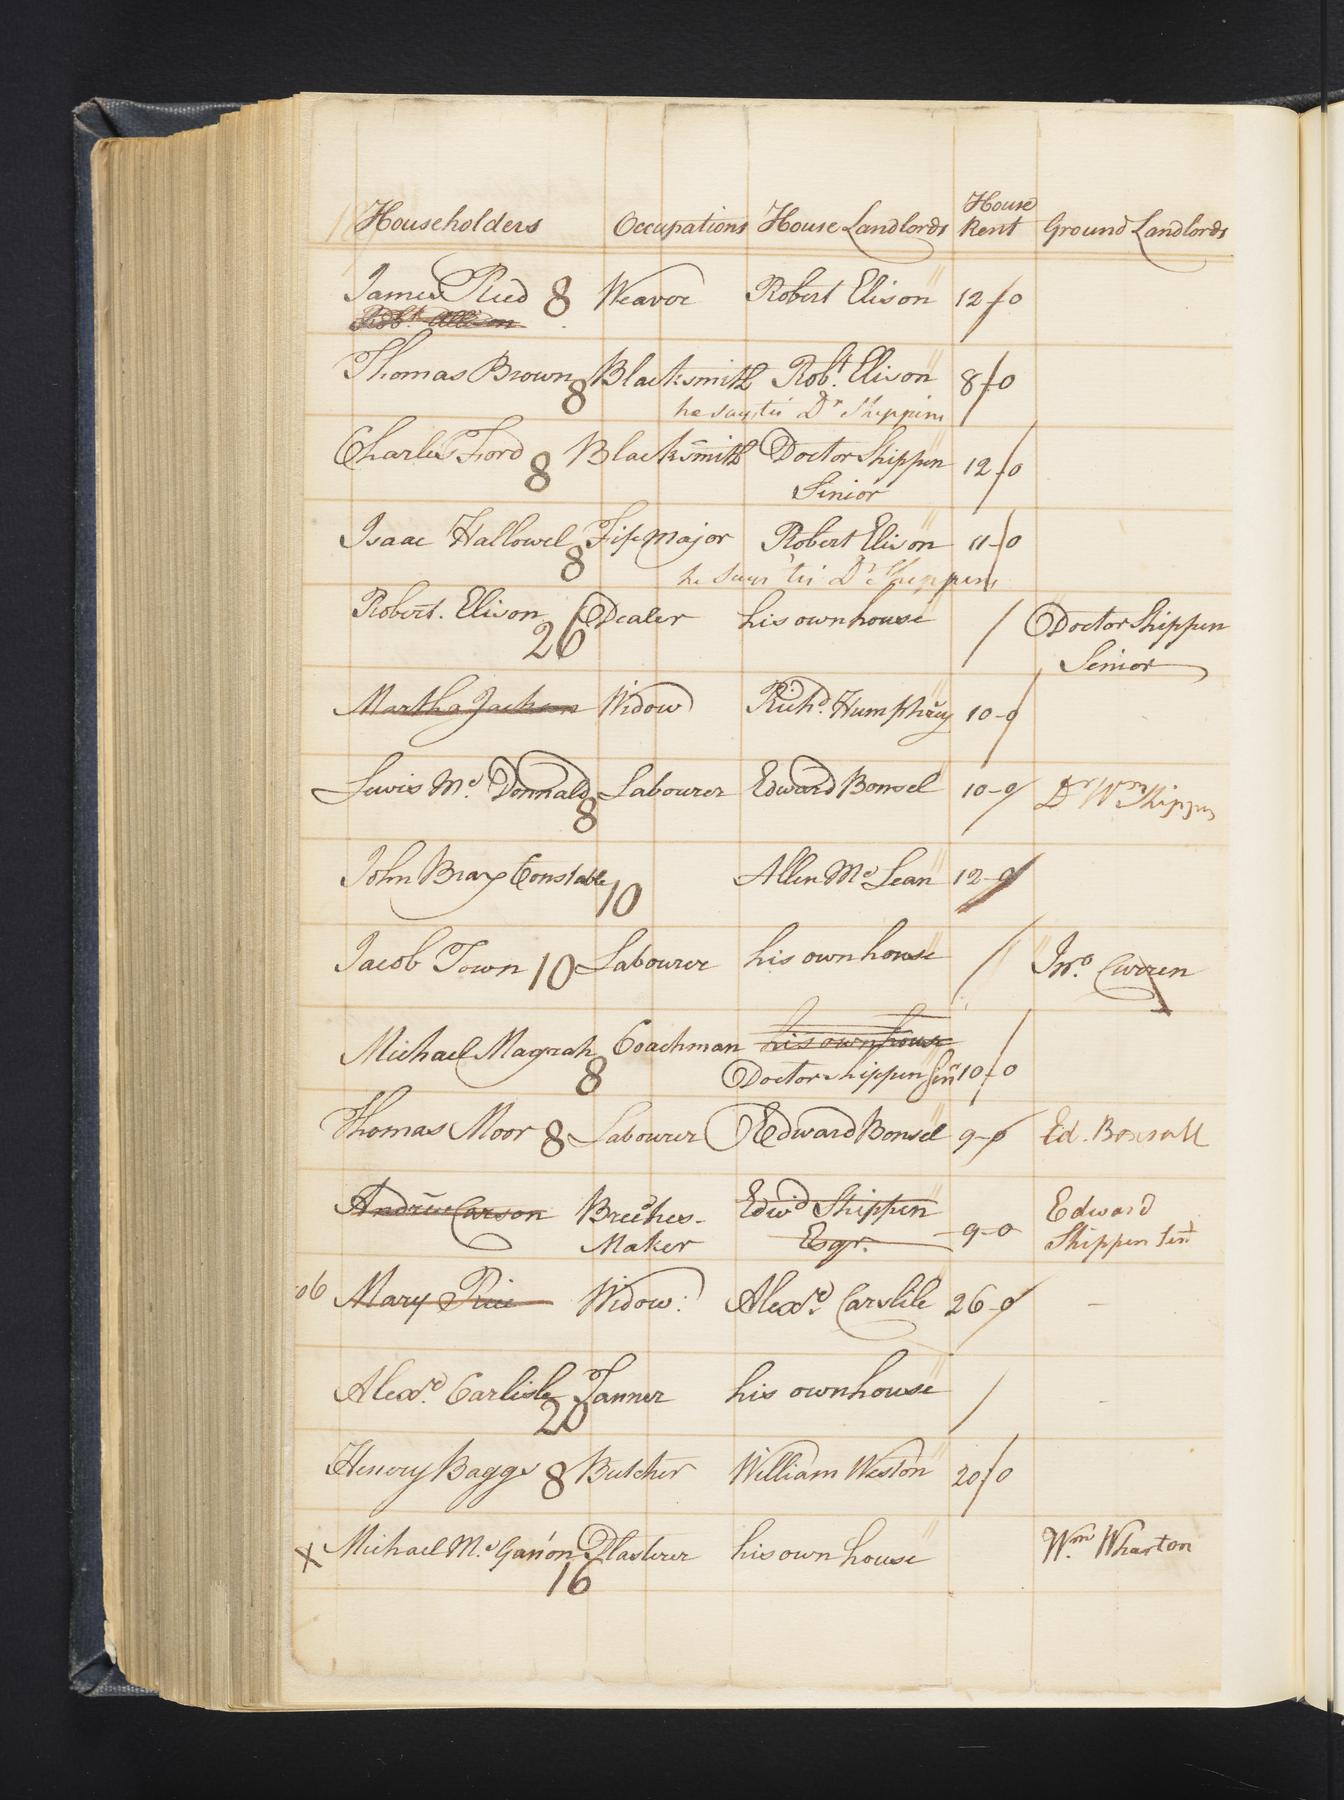 Householders Occupations House Landlords House Rent Ground Landlords
James Reed 8 Weavor Robert Elison 12-0
Robt. Allison
Thomas Brown 8 Blacksmith Robt. Elison 8-0
he says tis Dr Shippins
Charles Ford 8 Blacksmith Doctor Shippen 12-0
Sinior
Isaac Hallowel 8 Fife Major Robert Elison 11-0
he says tis Dr Shippens
Robert. Elison 26 Dealer his own house Doctor Shippen
Senior
Martha Jackson Widow Richd. Humphrey 10-0
Lewis Mc. Donnald 8 Labourer Edward Bonsel 10-0 Dr Wm Shippen
John Bray Constable 10 Allen Mc Lean 12-0
Jacob Town 10 Labourer his own house Jno. Curren
Michael Magrah 8 Coachman his own house
Doctor Shippen Sinr 10-0
Thomas Moor 8 Labourer Edward Bonsel 9-0 Ed. Bonsall
Andrew Carson Breeches- Edwd Shippen Edward
Maker Esqr. 9-0 Shippen
06 Mary Rice Widow: Alexr. Carslile 26-0 -
Alexr. Carlisle 20 Tanner his own house
Henery Baggs 8 Butcher William Weston 20-0
X Michael Mc. Ganon 16 Plasterer his own house Wm. Wharton